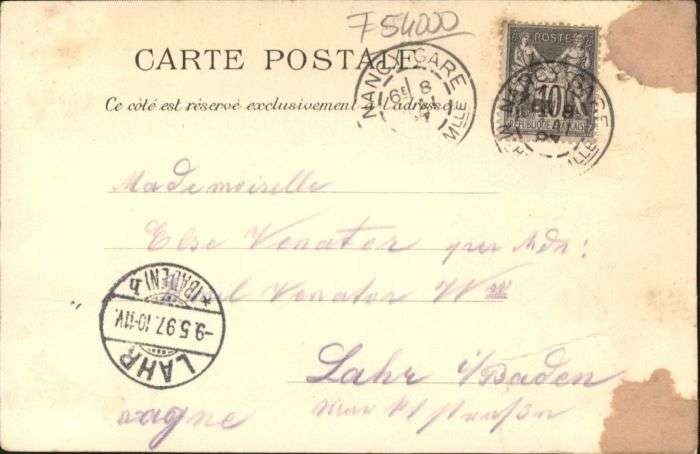 F 54000
CARTE POSTALE
Ce côté est réservé exclusivement à l'adresse
NANCY-GARE
6E 8
MLLE
POSTE
10
REPUBLIQUE FRANÇAISE
NANCY-GARE
Mademoiselle
Else Venator per Adr:
Venator Wwe
Lahr i/Baden
Marktstraße
LAHR
-9.5.97.10-11V.
*(BADEN) b